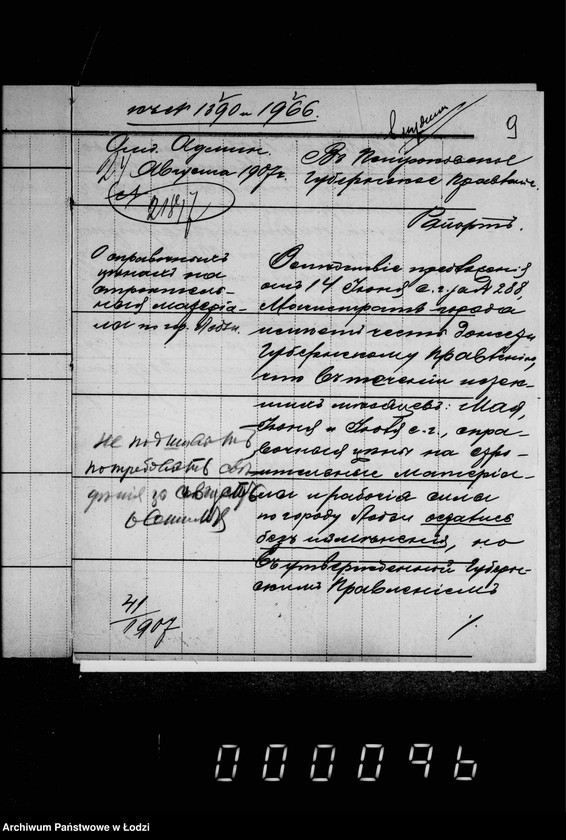 1390 и 1966.
9
Отд. Админ.
24 Августа 1907 г.
№ 2187
Въ Петроковское
Губернское Правленіе.
Рапортъ.
О справочныхъ
цѣнахъ на
строитель-
ные матеріа-
лы по гор. Лодзи.
Вслѣдствіе предписанія
отъ 14 Іюня с.г. за № 288,
Магистратъ города
имѣетъ честь донести
Губернскому Правленію,
что въ теченіи
мѣсяцевъ: Мая,
Іюня и Іюля с.г., спра-
вочныя цѣны на строи-
тельные матеріа-
лы и рабочія силы
по городу Лодзи остались
безъ измѣненія, но
въ утвержденной Губерн-
скимъ Правленіемъ
не подшивать
потребовать свѣ-
дѣнія за августъ
41
1907
./.
000096
Archiwum Państwowe w Łodzi